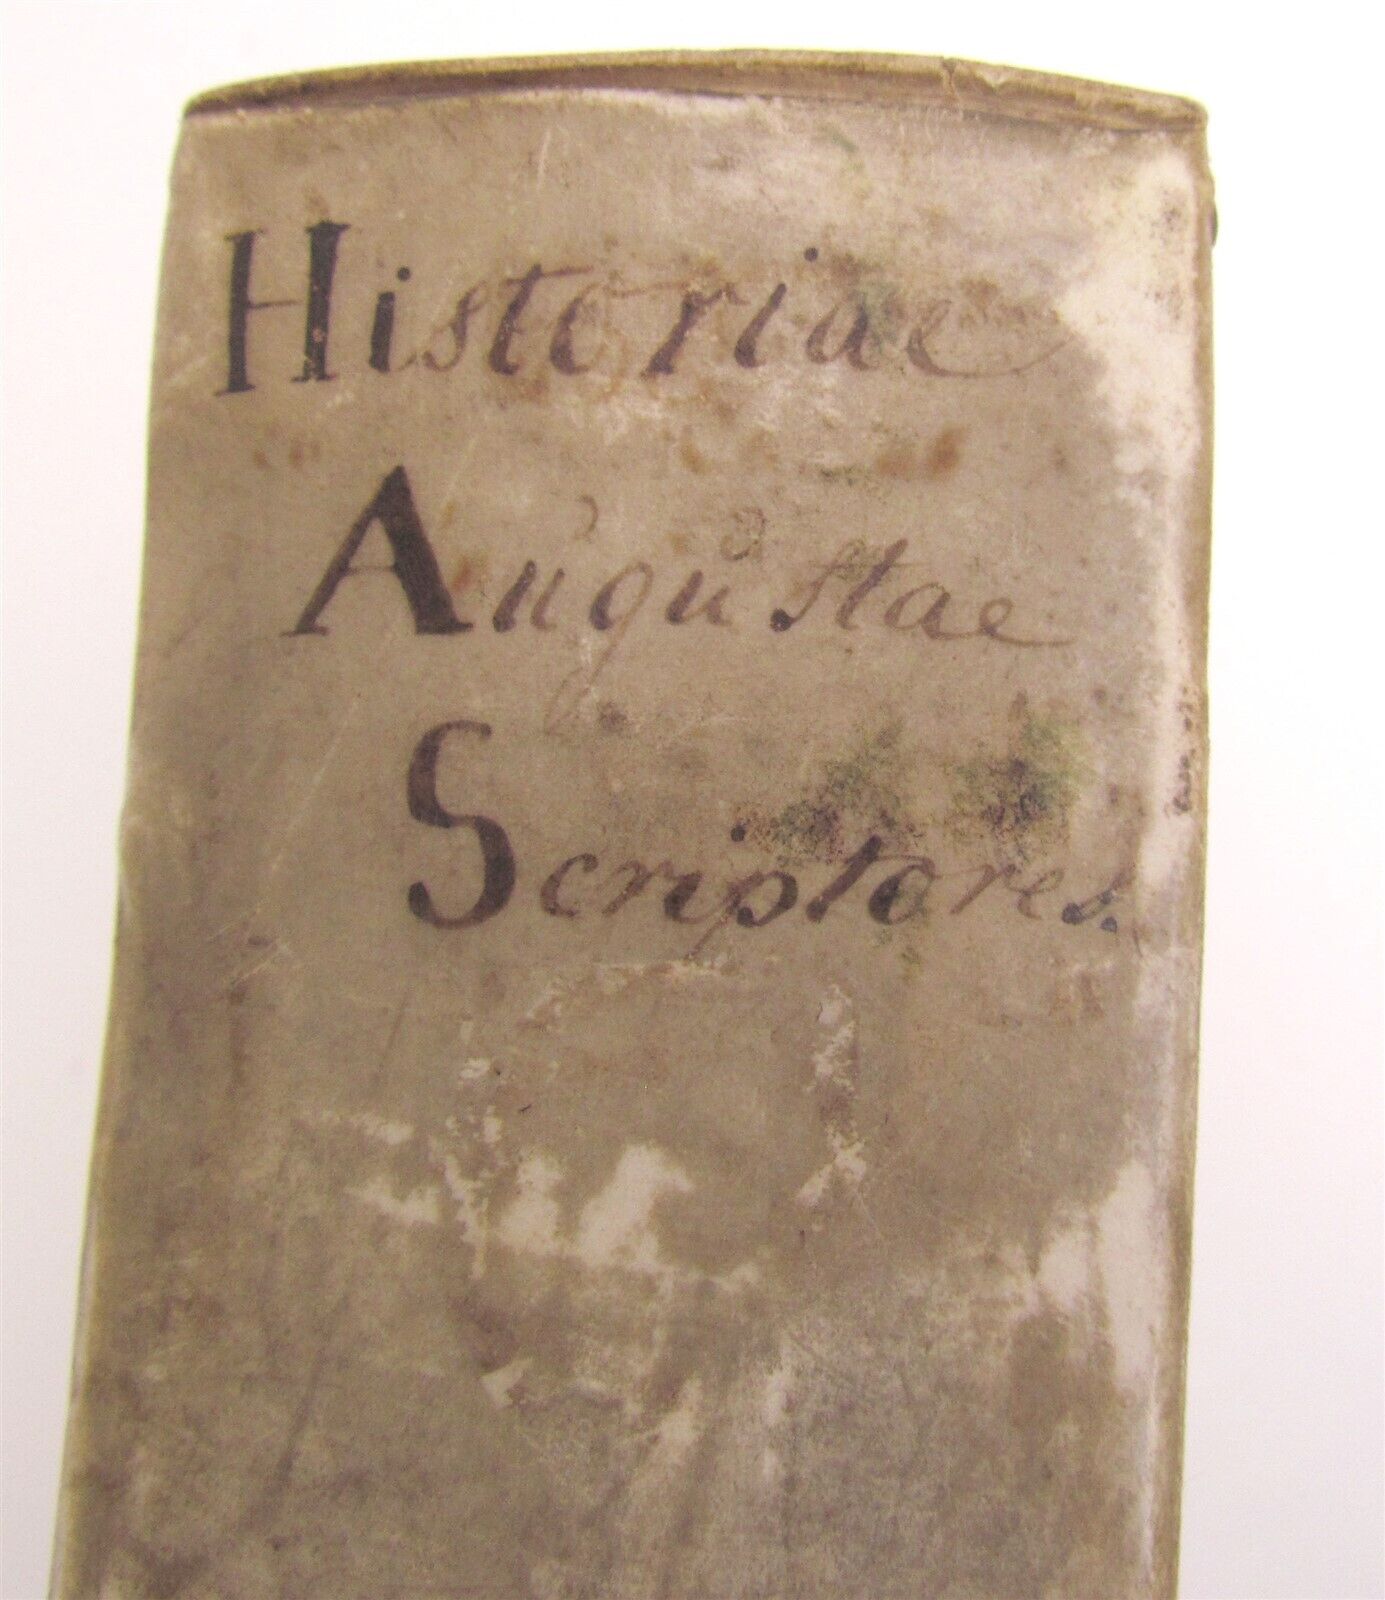 Historiae
Augustae
Scriptores.